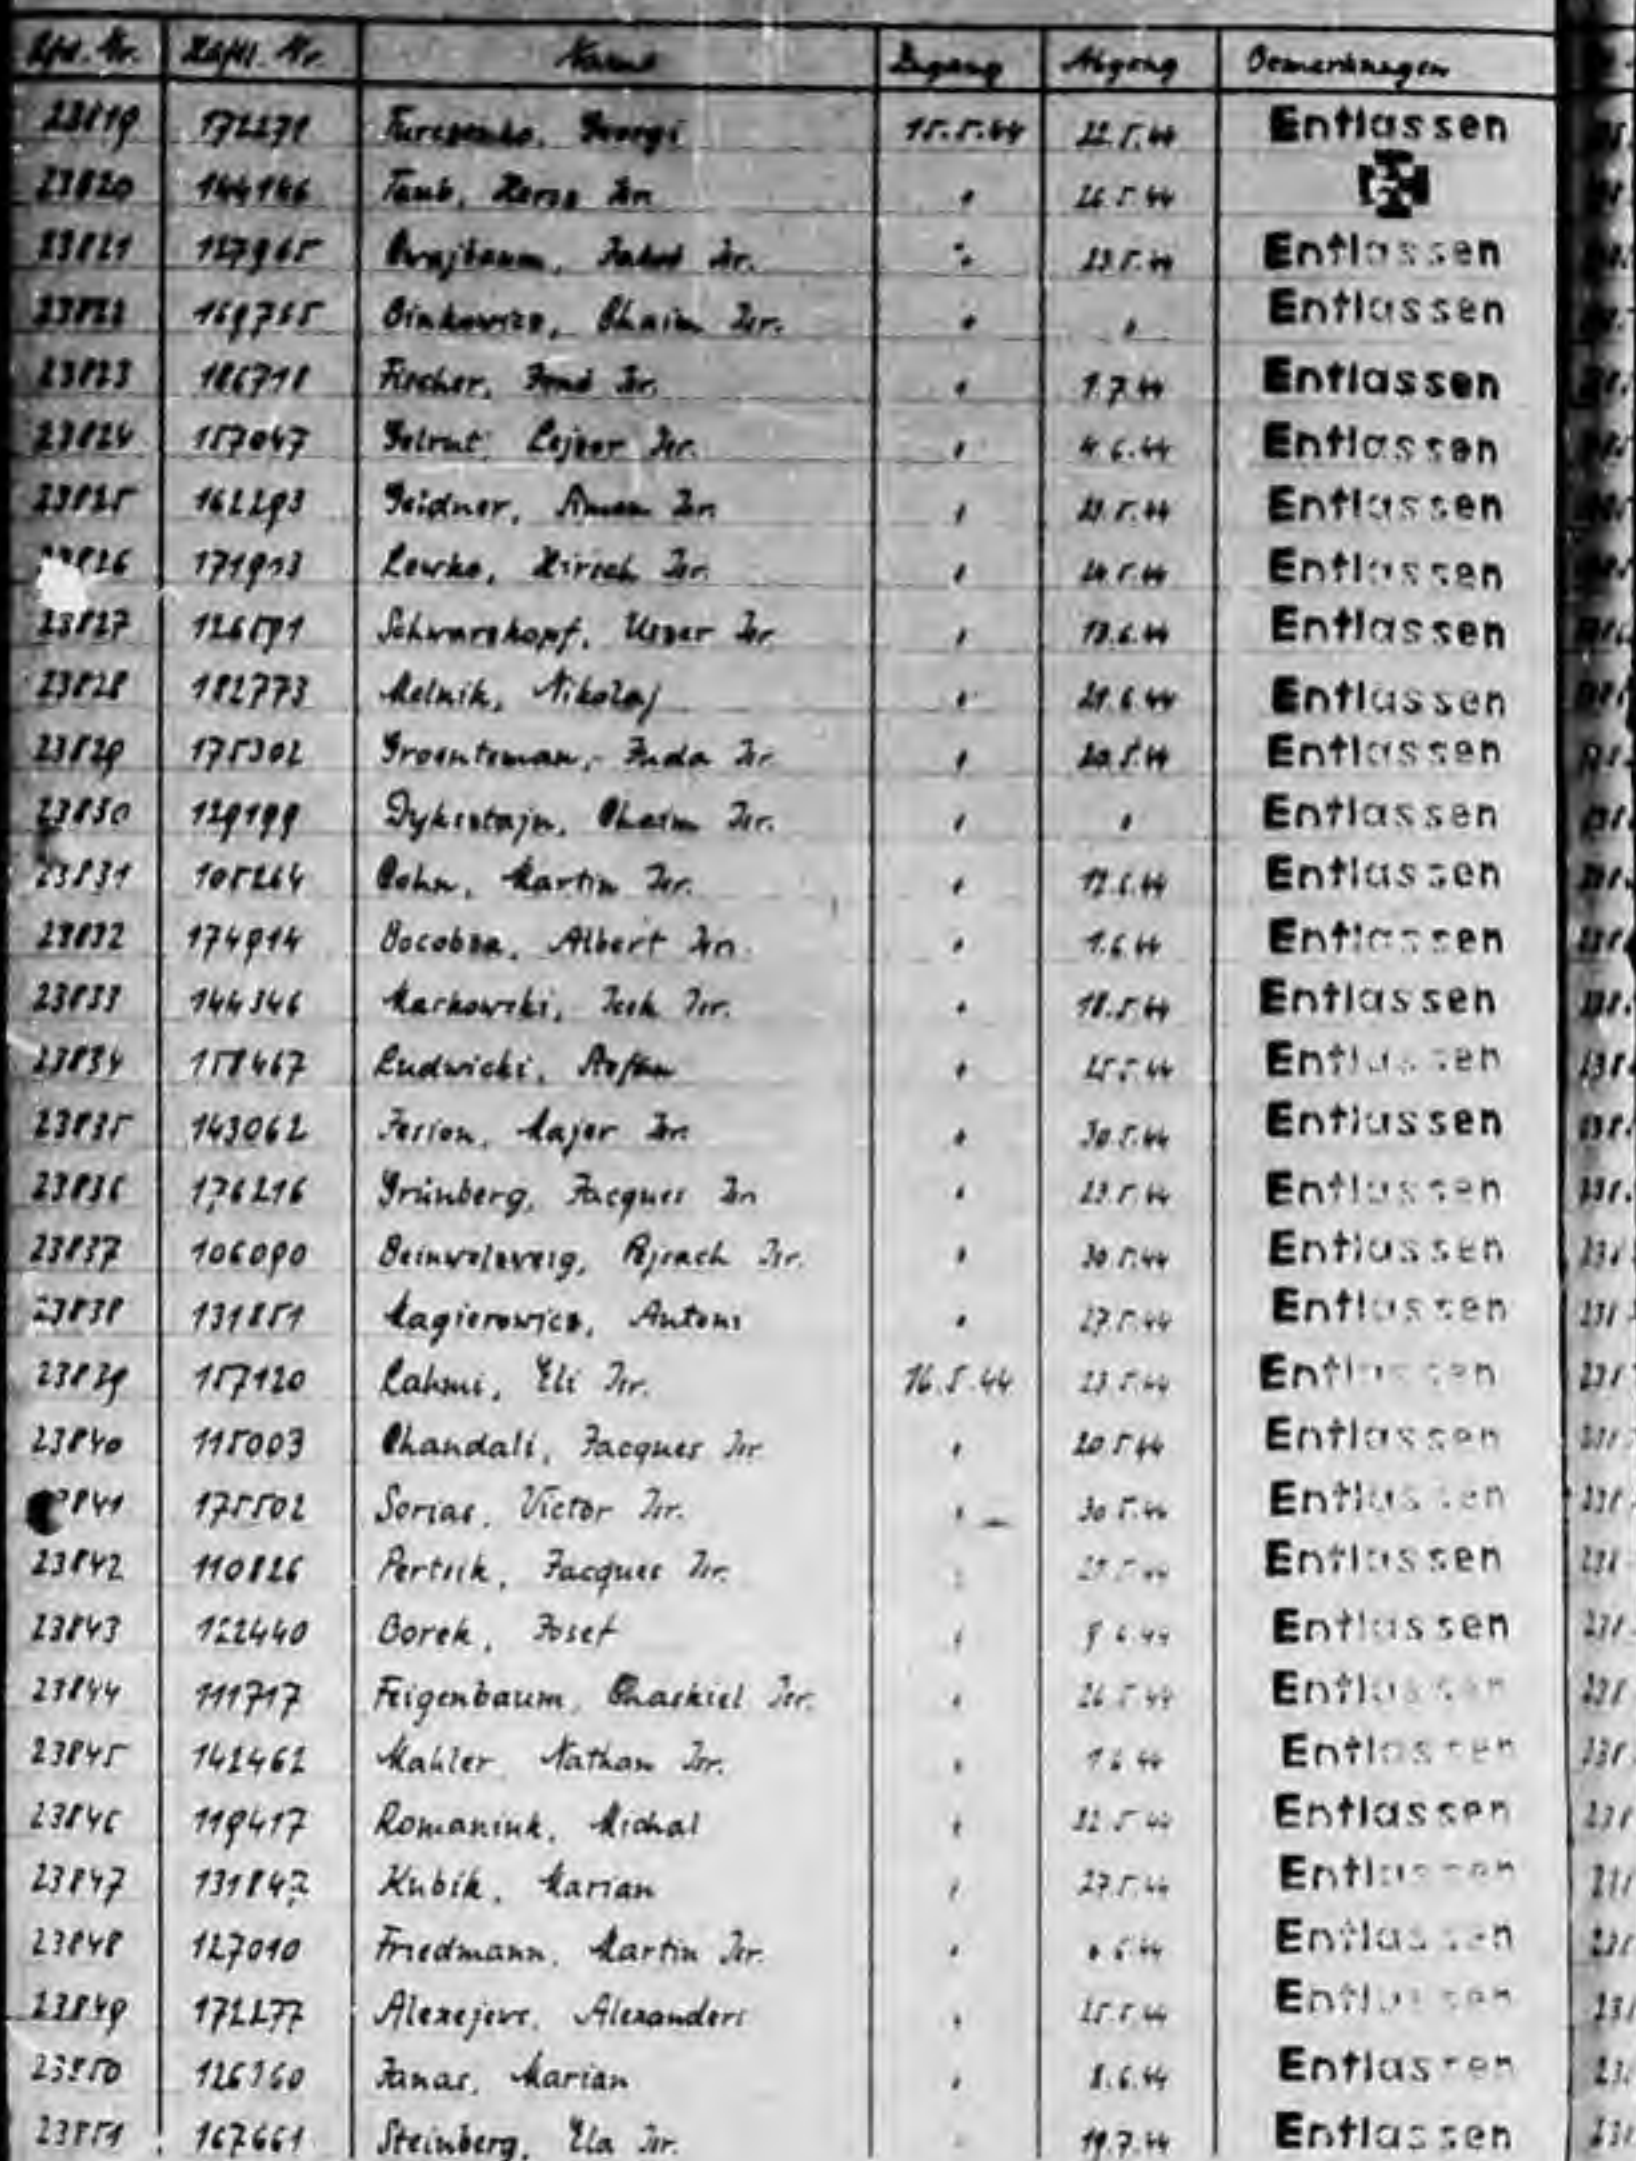 Lfd. Nr. Häftl. Nr. Name Zugang Abgang Bemerkungen
23819 172271 Georgi 15.5.44 22.5.44 Entlassen
23820 144146 Taub, Hersz Isr. " 26.5.44
23821 127965 Isr. " 23.5.44 Entlassen
23822 169765 Binkowicz, Chaim Isr. " " Entlassen
23823 186718 Fischer, Isr. " 1.7.44 Entlassen
23824 157047 Gelrut, Lejzor Isr. " 4.6.44 Entlassen
23825 162293 Geidner, Isr. " 23.5.44 Entlassen
171913 Lewko, Hirsch Isr. " 24.5.44 Entlassen
23827 126591 Schwarzkopf, Uszer Isr. " Entlassen
23828 182773 Melnik, Nikolaj " 21.6.44 Entlassen
23829 175302 Groenteman, Juda Isr. " 20.5.44 Entlassen
23830 129199 Dyksztajn, Chaim Isr. " " Entlassen
23831 105264 Cohn, Martin Isr. " 12.6.44 Entlassen
23832 174914 Bocobza, Albert Isr. " 1.6.44 Entlassen
23833 144346 Markowski, Icek Isr. " 18.5.44 Entlassen
23834 158467 Ludwicki, " 25.5.44 Entlassen
23835 143062 Jerion, Majer Isr. " 30.5.44 Entlassen
23836 176216 Grünberg, Jacques Isr. " 23.5.44 Entlassen
23837 106090 Isr. " 30.5.44 Entlassen
23838 131851 Magierowicz, Antoni " 27.5.44 Entlassen
23839 157120 Lahmi, Eli Isr. 16.5.44 23.5.44 Entlassen
23840 115003 Chandali, Jacques Isr. " 20.5.44 Entlassen
175502 Sorias, Victor Isr. " 30.5.44 Entlassen
23842 110826 Pertsik, Jacques Isr. " Entlassen
23843 122440 Borek, Josef " Entlassen
23844 111717 Feigenbaum, Chaskiel Isr. " 26.5.44 Entlassen
23845 142462 Mahler, Nathan Isr. " 1.6.44 Entlassen
23846 119417 Romaniuk, Michal " 22.5.44 Entlassen
23847 131847 Kubik, Marian " 27.5.44 Entlassen
23848 127010 Friedmann, Martin Isr. " Entlassen
23849 172277 Alexejevs, Alexanders " 25.5.44 Entlassen
23850 126360 Janas, Marian " 8.6.44 Entlassen
23851 167661 Steinberg, Ela Isr. 19.7.44 Entlassen